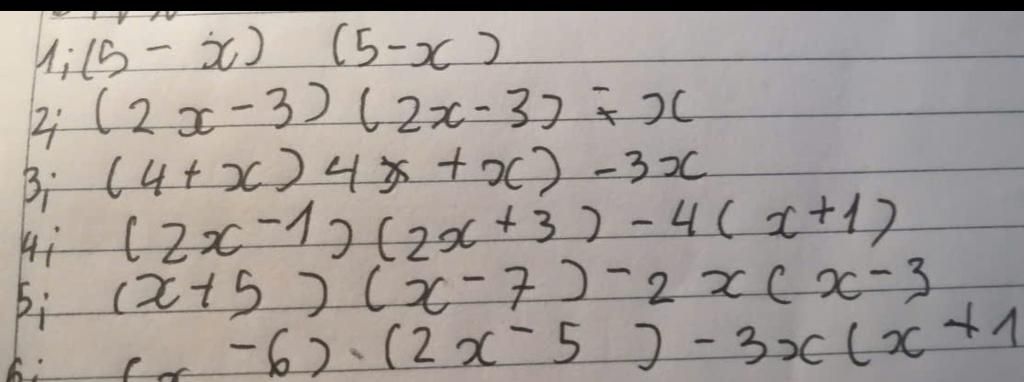 1; (5 - x) (5-x)
2; (2x-3) (2x-3) - x
3; (4+x) 4x + x) -3x
4; (2x-1) (2x+3) -4(x+1)
5; (x+5) (x-7) -2x(x-3
6; (x -6).(2x-5) -3x(x+1